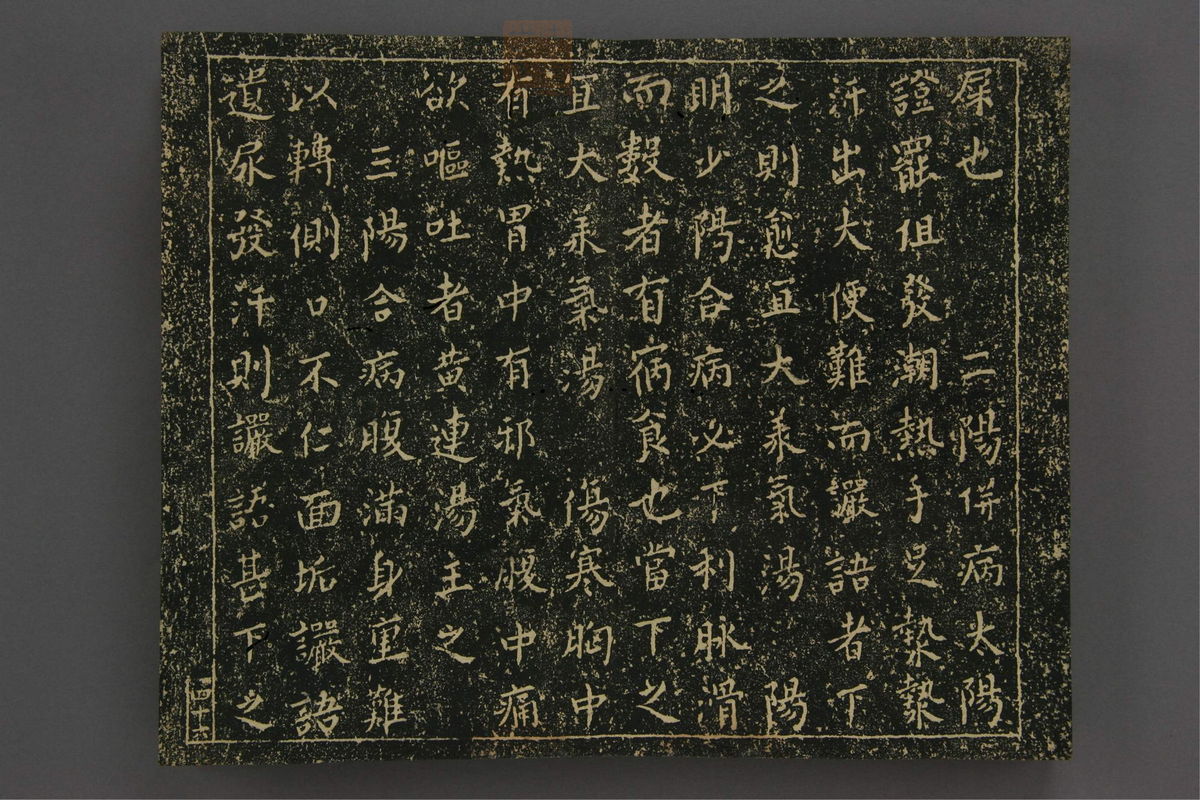 屎也　二陽併病太陽
證罷但發潮熱手足漐漐
汗出大便難而讝語者下
之則愈宜大承氣湯　陽
明少陽合病必下利脉滑
而數者有宿食也當下之
宜大承氣湯　傷寒胸中
有熱胃中有邪氣腹中痛
欲嘔吐者黄連湯主之
三陽合病腹滿身重難
以轉側口不仁面垢讝語
遺尿發汗則讝語甚下之
四十六